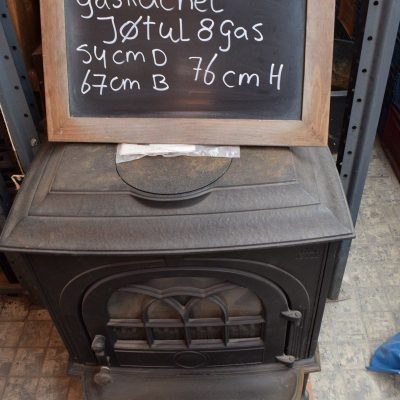 gaskachel
Jøtul 8 gas
54 cm D
67cm B 76 cm H